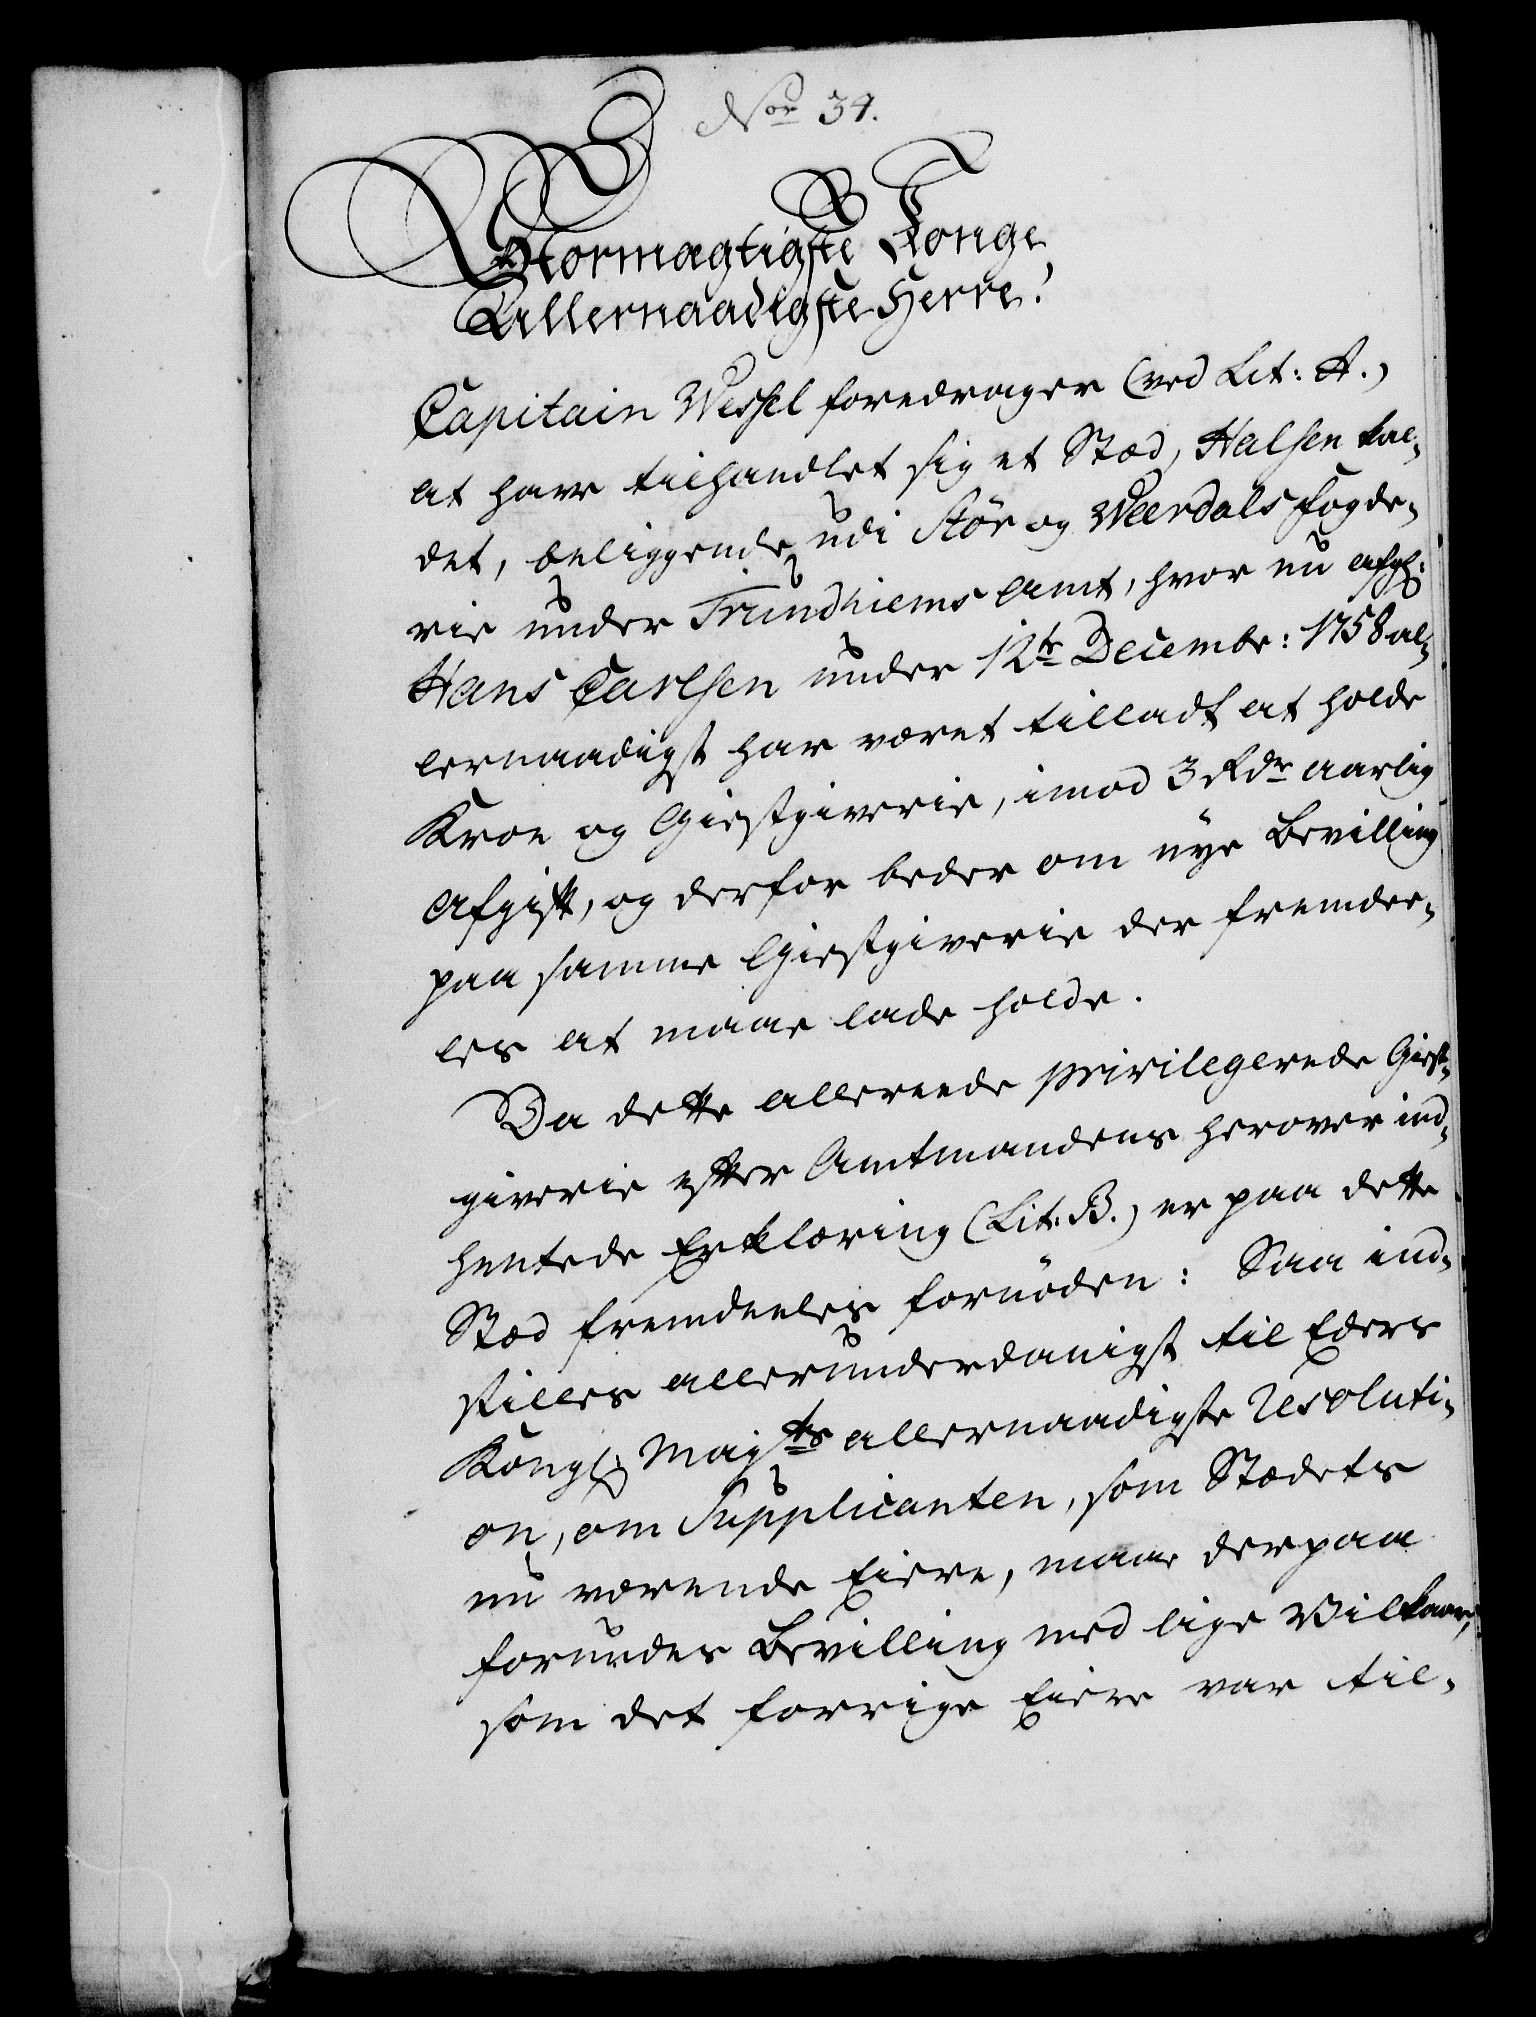 Nor 34.
Stormægtigste Konge
Allernaadigste Herre!
Capitain Wessel foredrager (ved Lit: A.)
at have tilhandlet sig et Stæd, Halsen kal-
det, beliggende udi Stør og Wærdals Fogde-
rie under Trundhiems Amt, hvor nu afg:
Hans Carlsen under 12te Decembr: 1758 al-
lernaadigst har været tilladt at holde
Kroe og Giestgiverie, imod 3 Rdr aarlig
Afgift, og derfor beder om nye Bevilling
paa samme Giestgiverie der fremdee-
les at maae lade holde.
Da dette allereede privilegerede Giest-
giverie efter Amtmandens herover ind-
hentede Erklæring (Lit: B.) er paa dette
Stæd fremdeeles fornøden: Saa ind-
stilles allerunderdanigst til Eders
Kongl: Mayts allernaadigste Resoluti-
on, om Supplicanten, som Stædets
nu værende Eiere, maae derpaa
forundes Bevilling med lige Vilkaar,
som det forrige Eiere var til-